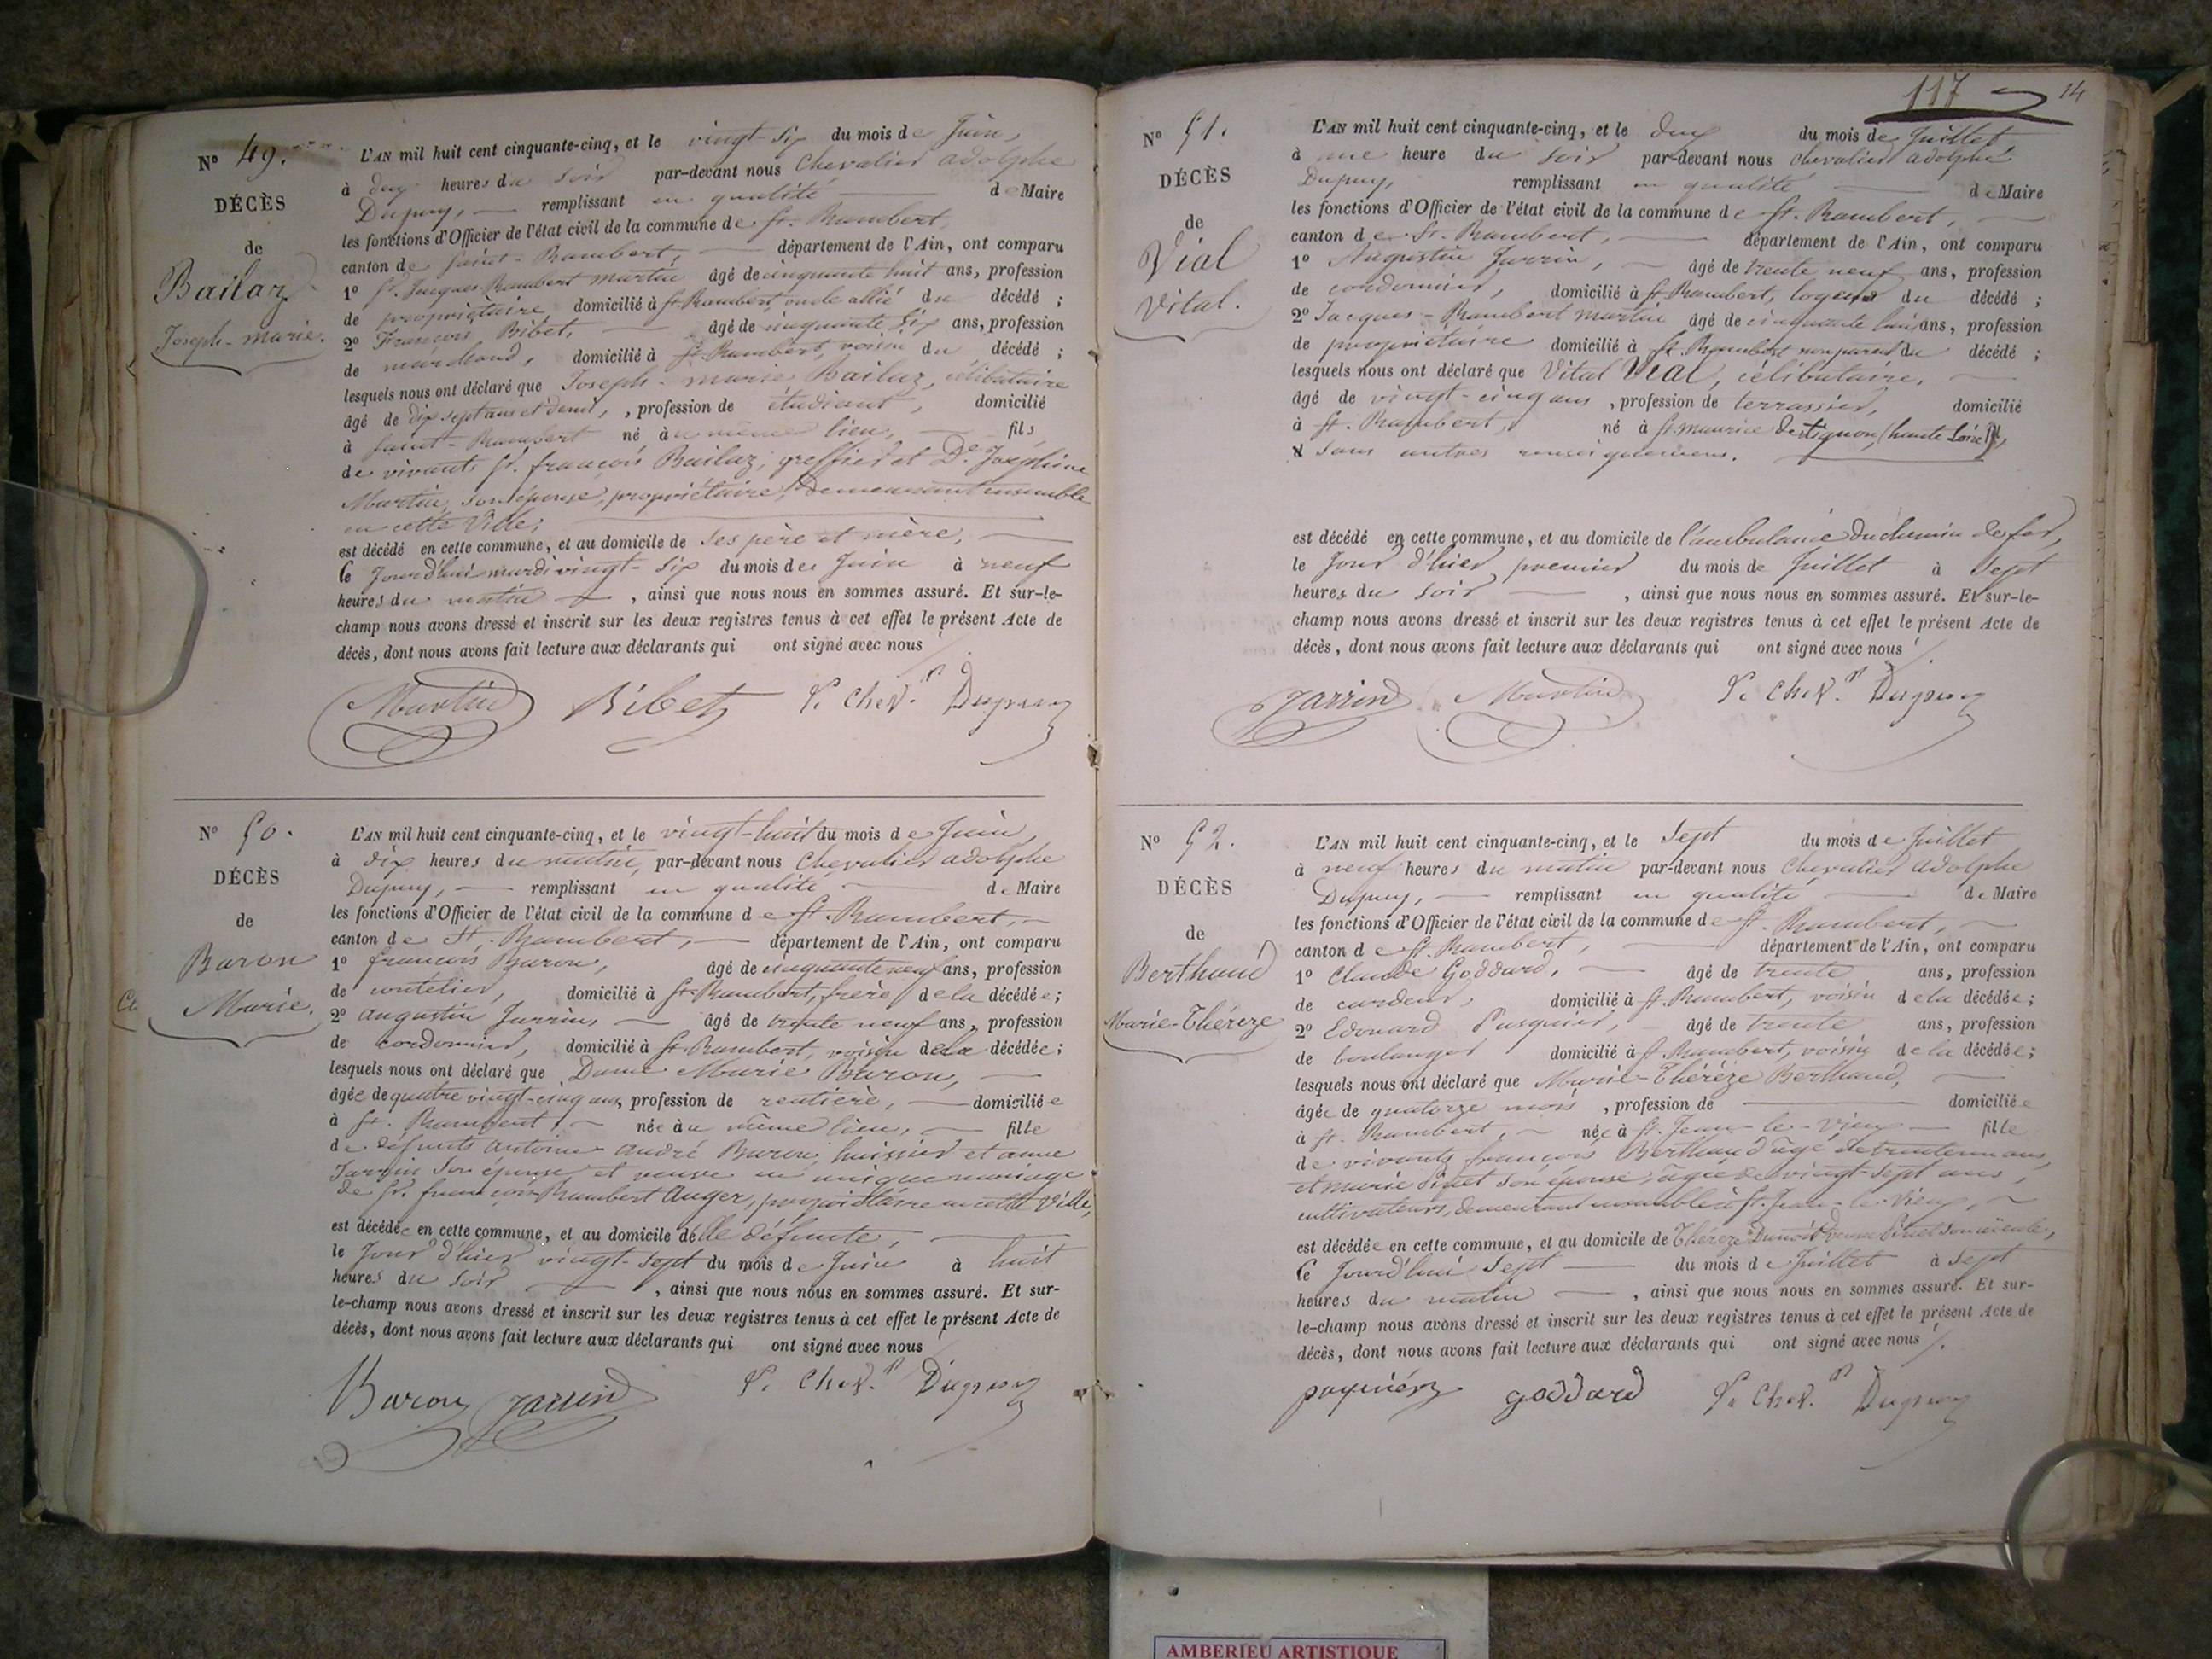 N° 49.
DÉCÈS
de
Bailaz
Joseph-marie.
L'AN mil huit cent cinquante-cinq, et le vingt-six du mois de Juin,
à deux heures du soir par-devant nous Chevalier adolphe
Dupuy, remplissant en qualité de Maire
les fonctions d'Officier de l'état civil de la commune de St. Rambert,
canton de Saint-Rambert, département de l'Ain, ont comparu
1° Sr. Jacques Rambert Martin âgé de cinquante huit ans, profession
de propriétaire, domicilié à St Rambert, oncle allié du décédé ;
2° François Bibet, âgé de cinquante six ans, profession
de marchand, domicilié à St. Rambert, voisin du décédé ;
lesquels nous ont déclaré que Joseph-marie Bailaz, célibataire
âgé de dix sept ans et demi, , profession de étudiant, domicilié
à Saint-Rambert né au même lieu, fils
de vivants Sr. françois Bailaz, greffier et De. Joséphine
Martin, son épouse, propriétaire, demeurant ensemble
en cette Ville;
est décédé en cette commune, et au domicile de ses père et mère,
le Jourd'hui mardi vingt-six du mois de Juin à neuf
heures du matin , ainsi que nous nous en sommes assuré. Et sur-le-
champ nous avons dressé et inscrit sur les deux registres tenus à cet effet le présent Acte de
décès, dont nous avons fait lecture aux déclarants qui ont signé avec nous
Martin Bibet Le Chev. Dupuy
N° 50.
DÉCÈS
de
Baron
Marie.
L'AN mil huit cent cinquante-cinq, et le vingt-huit du mois de Juin,
à dix heures du matin, par-devant nous Chevalier adolphe
Dupuy, remplissant en qualité de Maire
les fonctions d'Officier de l'état civil de la commune de St. Rambert,
canton de St. Rambert, département de l'Ain, ont comparu
1° françois Baron, âgé de cinquante neuf ans, profession
de coutelier, domicilié à St. Rambert, frère de la décédée;
2° augustin Jarrin, âgé de trente neuf ans, profession
de cordonnier, domicilié à St. Rambert, voisin de la décédée;
lesquels nous ont déclaré que Dame Marie Baron,
âgée de quatre vingt-cinq ans, profession de rentière, domiciliée
à St. Rambert, née au même lieu, fille
de défunts antoine andré Baron, huissier et anne
Jarrin son épouse et veuve en unique mariage
de Sr. françois Rambert Auger, propriétaire en cette Ville,
est décédée en cette commune, et au domicile de la défunte,
le Jour d'hier vingt-sept du mois de Juin à huit
heures du soir , ainsi que nous nous en sommes assuré. Et sur-
le-champ nous avons dressé et inscrit sur les deux registres tenus à cet effet le présent Acte de
décès, dont nous avons fait lecture aux déclarants qui ont signé avec nous
Baron Jarrin Le Chev. Dupuy
117 14
N° 51.
DÉCÈS
de
Vial
Vital.
L'AN mil huit cent cinquante-cinq, et le deux du mois de Juillet
à une heure du soir par-devant nous Chevalier adolphe
Dupuy, remplissant en qualité de Maire
les fonctions d'Officier de l'état civil de la commune de St. Rambert,
canton de St. Rambert, département de l'Ain, ont comparu
1° Augustin Jarrin, âgé de trente neuf ans, profession
de cordonnier, domicilié à St. Rambert, logeur du décédé ;
2° Jacques-Rambert Martin âgé de cinquante huit ans, profession
de propriétaire domicilié à St. Rambert non parent du décédé ;
lesquels nous ont déclaré que Vital Vial, célibataire,
âgé de vingt-cinq ans , profession de terrassier, domicilié
à St. Rambert, né à St. maurice de lignon (haute Loire)
sans autres renseignements.
est décédé en cette commune, et au domicile de l'ambulance du chemin de fer,
le Jour d'hier premier du mois de Juillet à sept
heures du soir , ainsi que nous nous en sommes assuré. Et sur-le-
champ nous avons dressé et inscrit sur les deux registres tenus à cet effet le présent Acte de
décès, dont nous avons fait lecture aux déclarants qui ont signé avec nous
Jarrin Martin Le Chev. Dupuy
N° 52.
DÉCÈS
de
Berthaud
Marie-Thérèze
L'AN mil huit cent cinquante-cinq, et le Sept du mois de Juillet
à neuf heures du matin par-devant nous Chevalier adolphe
Dupuy, remplissant en qualité de Maire
les fonctions d'Officier de l'état civil de la commune de St. Rambert,
canton de St. Rambert, département de l'Ain, ont comparu
1° Claude Goddard, âgé de trente ans, profession
de cardeur, domicilié à St. Rambert, voisin de la décédée;
2° Edouard Pasquier, âgé de trente ans, profession
de boulanger domicilié à St. Rambert, voisin de la décédée;
lesquels nous ont déclaré que Marie-Thérèze Berthaud,
âgée de quatorze mois , profession de domiciliée
à St. Rambert, née à St. Jean-le-Vieux fille
de vivants françois Berthaud âgé de trente un ans,
et marie Pinet son épouse, âgée de vingt-sept ans,
cultivateurs, demeurant ensemble à St. Jean-le-Vieux,
est décédée en cette commune, et au domicile de Thérèze veuve Pinet son aïeule,
le Jourd'hui Sept du mois de Juillet à sept
heures du matin , ainsi que nous nous en sommes assuré. Et sur-
le-champ nous avons dressé et inscrit sur les deux registres tenus à cet effet le présent Acte de
décès, dont nous avons fait lecture aux déclarants qui ont signé avec nous
goddard Le Chev. Dupuy
AMBERIEU ARTISTIQUE